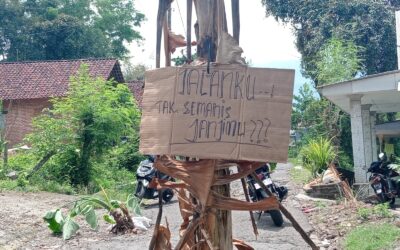 JALANKU...!
TAK SEMANIS
JANJIMU???